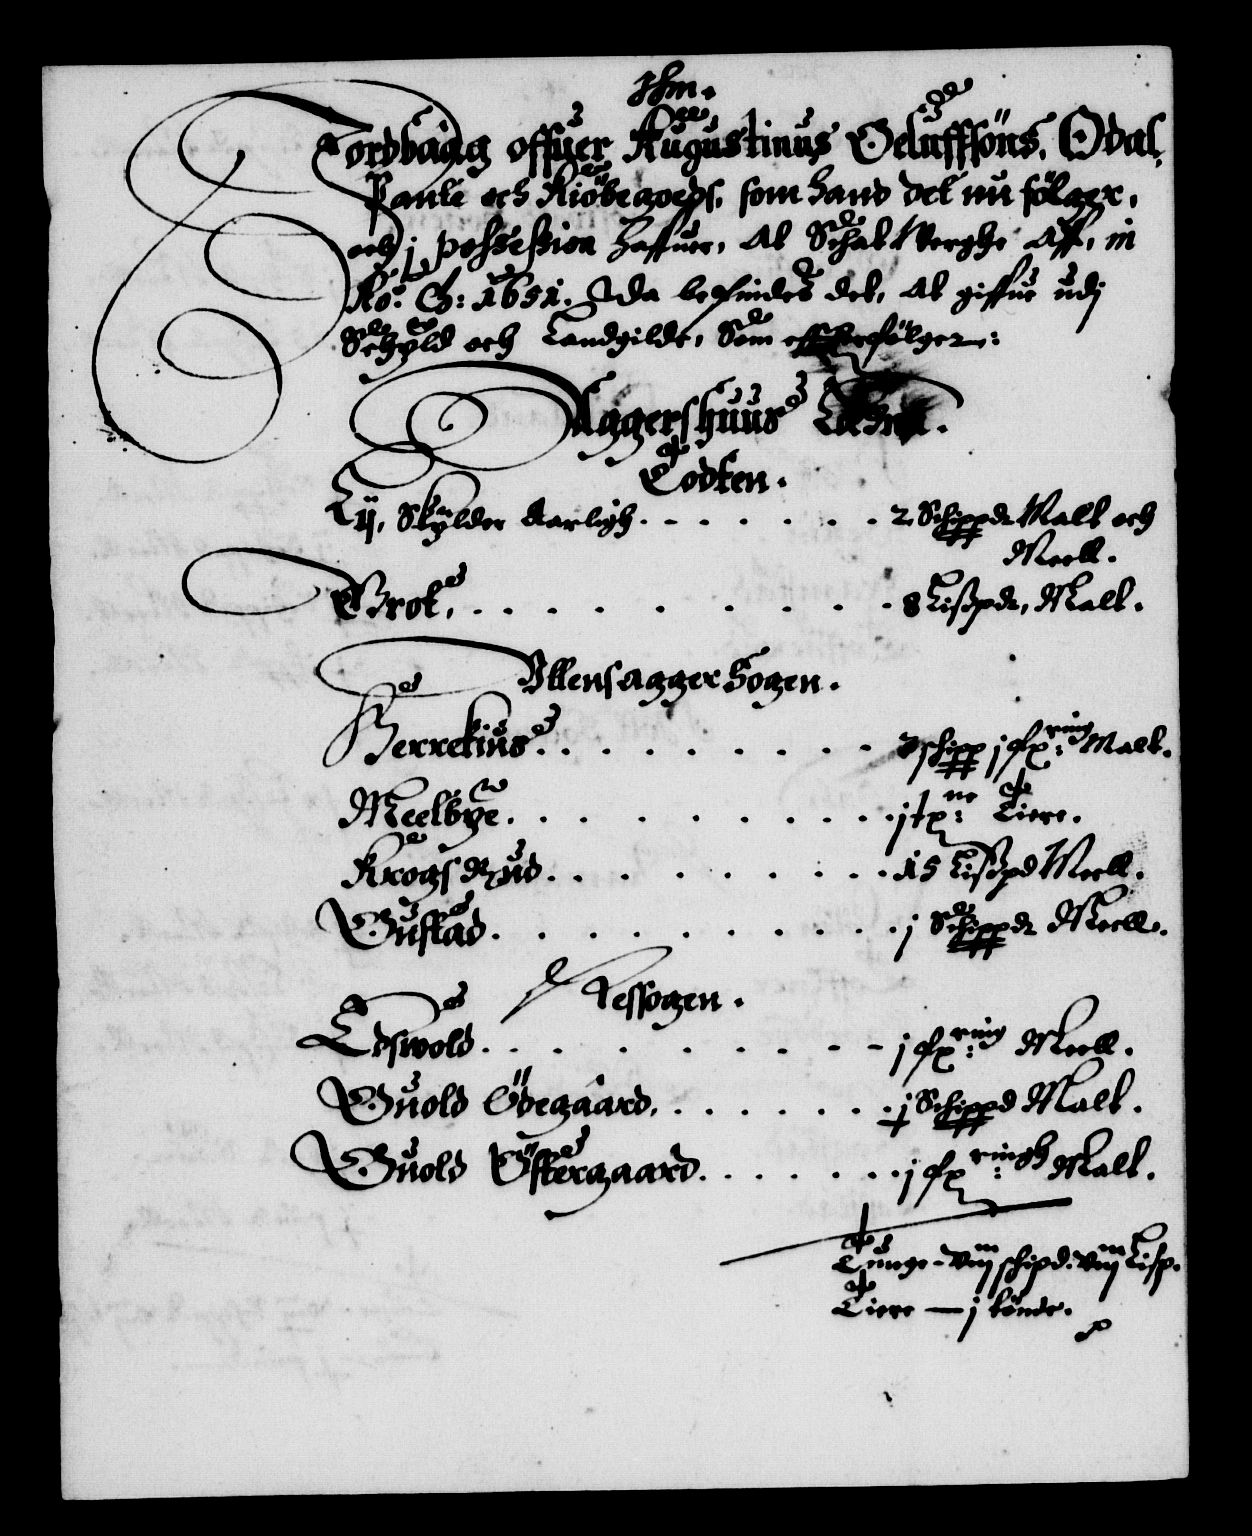 Jhm.
Jordbaag offuer Augustinus Oeluffsøns, Odal,
Pante och Kiøbegoeds, som hand det nu følger,
och j possession haffuer, At Schat Werghe Aff, in
Ao: Ch: 1651. Ida befindes det, At giffue udj
Schyld och Landgilde, Som effterfølger:
Aggershuus Lehn.
Todten.
Lÿ, Skylder Aarligh . . . . . . . 2 Schippd Malt och
Meell.
Brot, . . . . . . . . . 8 Lispd, Malt.
Ullensagger Sogen.
Herrekius . . . . . . . . schipp j fx:ring Malt.
Meelbye . . . . . . . . . j tx:ne Tiere.
Krogsrud . . . . . . . . 15 Lispd Meell.
Gustad . . . . . . . . . j Schippd Meell.
Nessogen.
Edswold . . . . . . . . j fx:ring Meell.
Guold Ødegaard, . . . . . . . j Schippd Malt.
Guold Østergaard . . . . . . . j fx:ringh Malt.
Tunge - viij schipd. viij Lisp.
Tiere — j tønde.